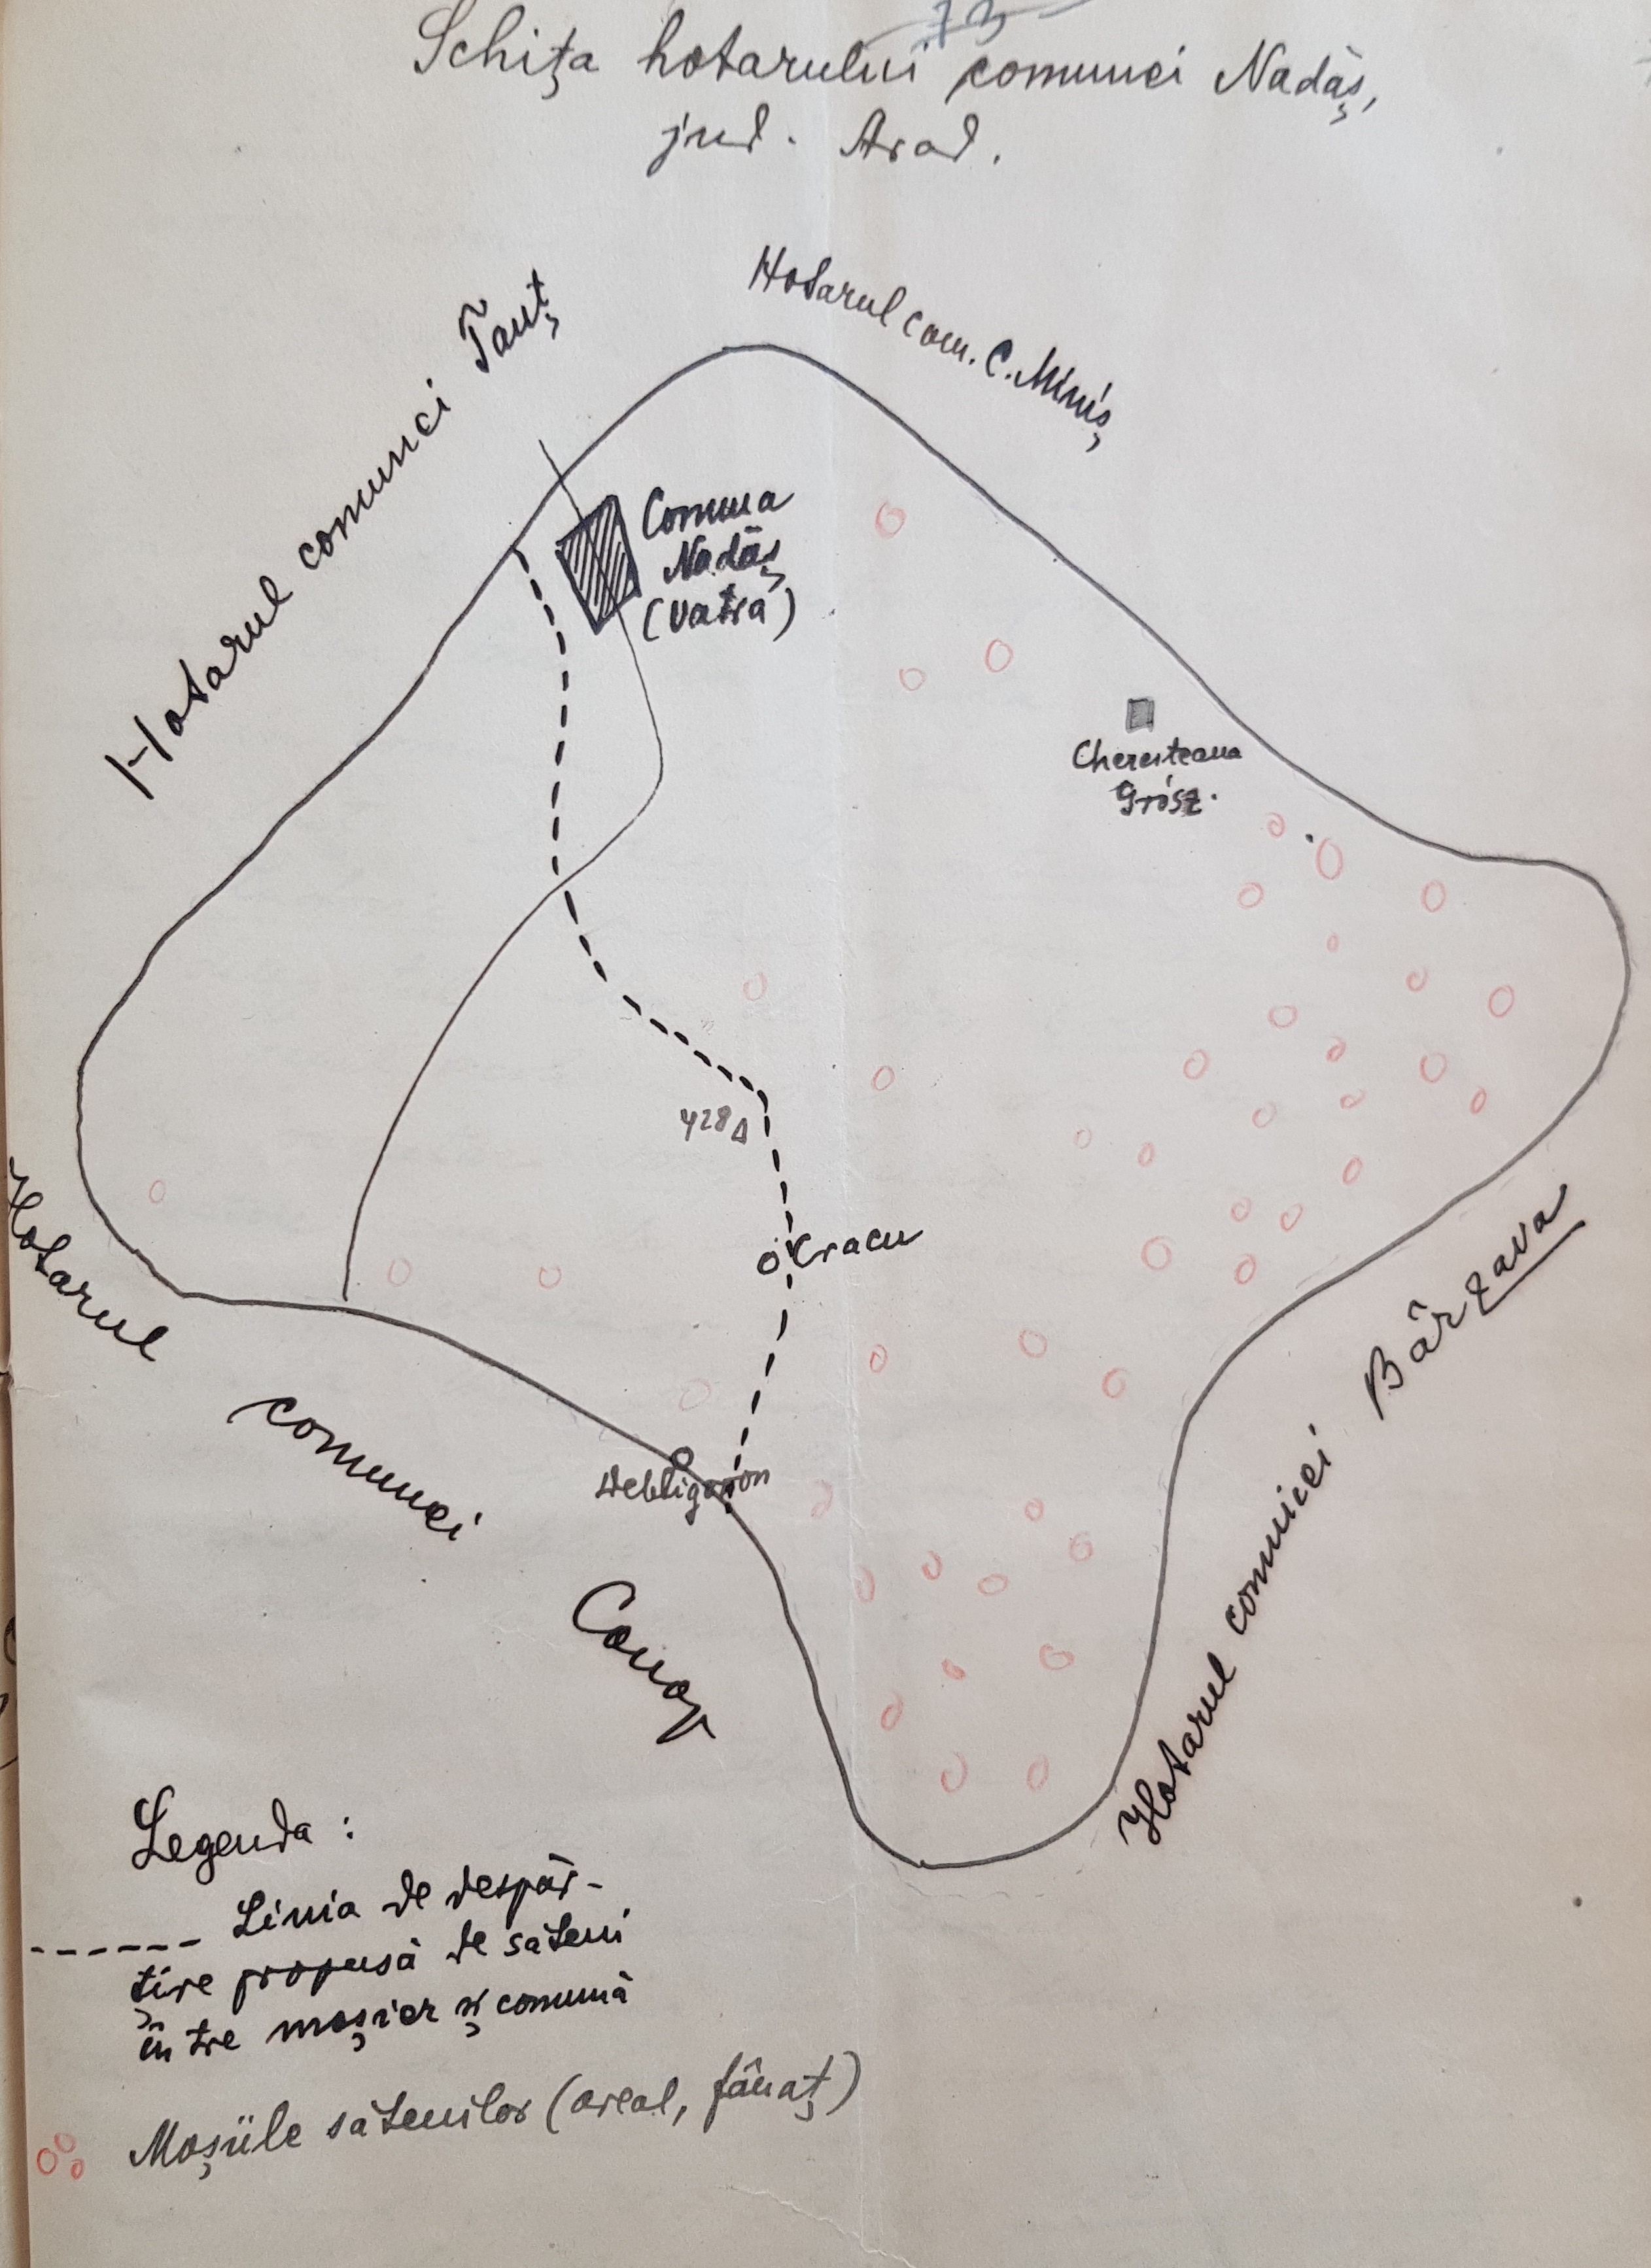 73
Schița hotarului comunei Nadăș,
jud. Arad.
Hotarul com. C. Miniș
Hotarul comunei Tauț
Comuna
Nadăș
(Vatră)
Grósz.
428
Cracu
Hotarul
comunei
Conop
Hotarul comunei Bârzava
Legenda :
Linia de despăr-
țire propusă de săteni
între moșier și comună
Moșiile sătenilor (areal, fânaț)